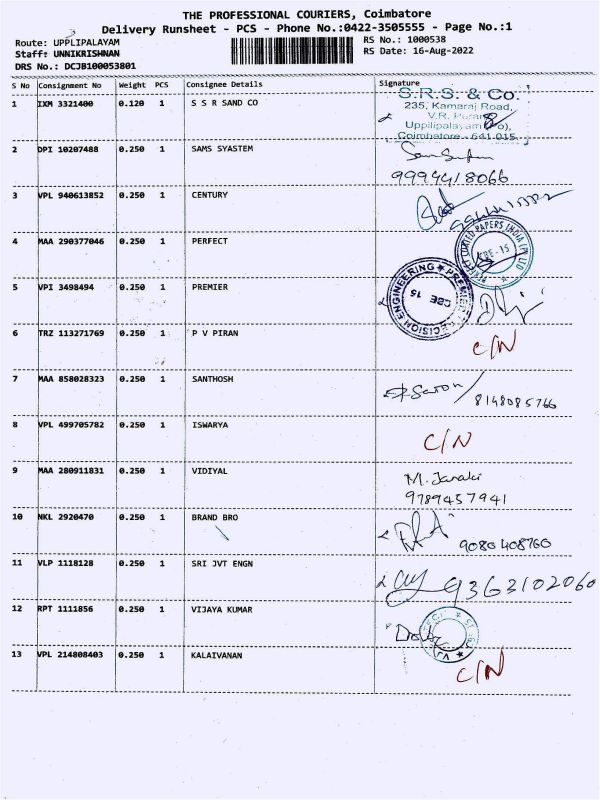 THE PROFESSIONAL COURIERS, Coimbatore
Delivery Runsheet - PCS - Phone No.:0422-3505555 - Page No.:1
Route: UPPLIPALAYAM
Staff: UNNIKRISHNAN
DRS No.: DCJB100053801
RS No.: 1000538
RS Date: 16-Aug-2022
S No Consignment No Weight PCS Consignee Details Signature
1 IXM 3321400 0.120 1 S S R SAND CO
S.R.S. & Co.
235, Kamaraj Road,
V.R. Puram
Uppilipalayam (Po),
Coimbatore - 641 015.
2 DPI 10207488 0.250 1 SAMS SYASTEM
9994418066
3 VPL 940613852 0.250 1 CENTURY
4 MAA 290377046 0.250 1 PERFECT
COATED PAPERS INDIA (P) LTD
CBE - 15
5 VPI 3498494 0.250 1 PREMIER
PREMIER PRECISION ENGINEERING
CBE 15
6 TRZ 113271769 0.250 1 P V PIRAN
C/N
7 MAA 858028323 0.250 1 SANTHOSH
8148085766
8 VPL 499705782 0.250 1 ISWARYA
C/N
9 MAA 280911831 0.250 1 VIDIYAL
M. Janaki
9789457941
10 NKL 2920470 0.250 1 BRAND BRO
9080408760
11 VLP 1118128 0.250 1 SRI JVT ENGN
9363102060
12 RPT 1111856 0.250 1 VIJAYA KUMAR
13 VPL 214808403 0.250 1 KALAIVANAN
C/N